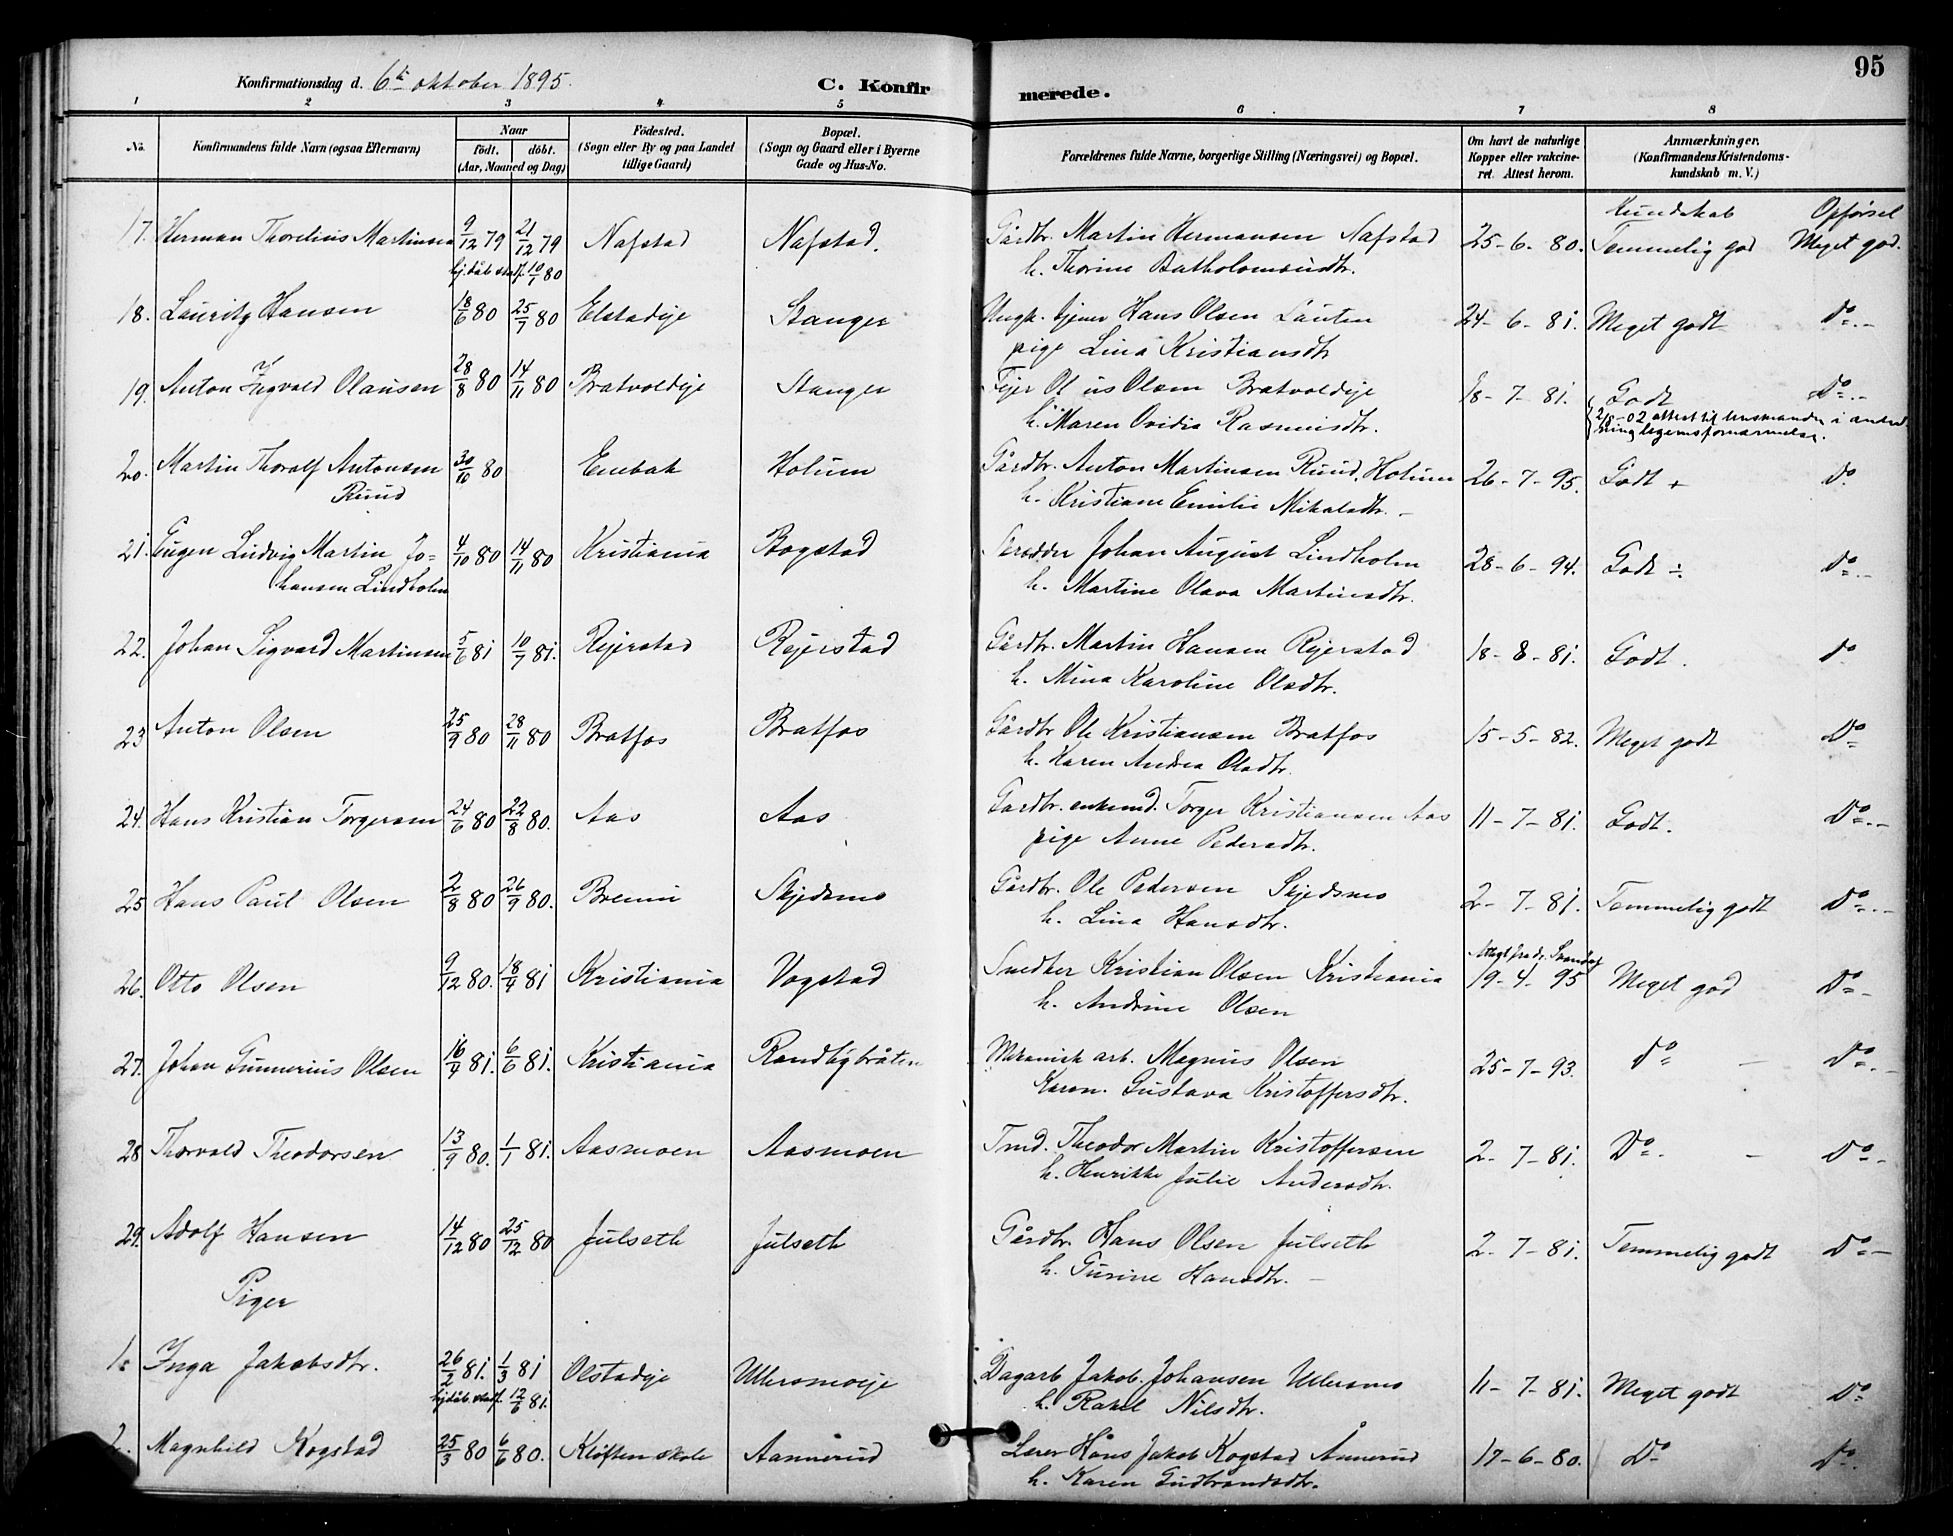 95
Konfirmationsdag d. 6te oktober 1895.
C. Konfirmerede.
1 2 3 4 5 6 7 8
No. Konfirmandens fulde Navn (ogsaa Efternavn) Naar födt. döbt. (Aar, Maaned og Dag) Födested. (Sogn eller By og paa Landet tillige Gaard) Bopæl. (Sogn og Gaard eller i Byerne Gade og Hus-No. Forældrenes fulde Navne, borgerlige Stilling (Næringsvei) og Bopæl. Om havt de naturlige Kopper eller vakcineret. Attest herom. Anmærkninger. (Konfirmandens Kristendomskundskab m. V.)
Kundskab Opførsel
17. Herman Thorelius Martinsen 9/12 79 21/12 79 Nafstad Nafstad. Gårdbr. Martin Hermansen Nafstad 25-6-80. Temmelig god Meget god.
hj.dåb stadf. 10/7 80 h. Thorine Batholomæusdtr.
18. Lauritz Hansen 18/6 80 25/7 80 Elstadeje Stanger Ungk. tjener Hans Olsen Lauten 24-6-81. Meget godt Do
pige Lina Kristiansdtr
19. Anton Ingvald Olausen 28/8 80 14/11 80 Bratvoldeje Stanger Ol us Olsen Bratvoldeje 18-7-81. Godt Do
h. Maren Ovidia Rasmusdtr. 02 attest til lensmanden i anled-
ning legemsfornærmelse.
20. Martin Thoralf Antonsen 30/10 80 Enebak Holum Gårdbr. Anton Martinsen Ruud, Holum 26-7-95. Godt + Do
Ruud h. Kristiane Emilie Mikalsdtr.
21. Eugen Ludvig Martin Jo= 4/10 80 14/11 80 Kristiania Bogstad Skrædder Johan August Lindholm 28-6-94. Godt ÷ Do
hansen Lindholm h. Martine Olava Martinsdtr.
22. Johan Sigvard Martinsen 5/6 81 10/7 81. Rejerstad Rejerstad Gårdbr. Martin Hansen Rejerstad 18-8-81. Godt. Do
h. Mina Karoline Olsdtr.
23 Anton Olsen 25/9 80 28/11 80 Bratfos Bratfos Gårdbr Ole Kristiansen Bratfos 15-5-82. Meget godt Do
h. Karen Andrea Olsdtr.
24. Hans Kristian Torgersen 24/6 80 22/8 80. Aas Aas Gardbr. enkemd. Torger Kristiansen Aas 11-7-81. Godt. Do
pige Anne Pedersdtr.
25 Hans Paul Olsen 2/8 80 26/9 80. Brenni Skjedsmo Gårdbr. Ole Pedersen Skjedsmo 2-7-81. Temmelig godt Do
h. Lina Hansdtr.
26. Otto Olsen 9/12 80. 18/4 81 Kristiania Vogstad Snedker Kristian Olsen Kristiania 19-4-95 Meget god Do
h. Andrine Olsen
27. Johan Gunnerius Olsen 16/4 81. 6/6 81. Kristiania Randbybråten Mekanisk arb. Magnus Olsen 25-7-93. Do Do
Karen. Gustava Kristoffersdtr.
28 Thorvald Theodorsen 13/9 80. 1/1 81. Aasmoen Aasmoen Tmd. Theodor Martin Kristoffersen 2-7-81. Do Do
h. Henrikke Julie Andersdtr.
29. Adolf Hansen 14/12 80 25/12 80 Julseth Julseth Gårdbr. Hans Olsen Julseth 2-7-81. Temmelig godt Do
h. Gurine Hansdtr.
Piger
1. Inga Jakobsdtr. 26/2 81. 1/3 81 Olstadeje Ullersmoeje Dagarb Jakob Johansen Ullersmo 11-7-81. Meget godt Do
hj.dåb stadf. 12/6 81. h. Rakel Nilsdtr.
2. Magnhild Kogstad 25/3 80 6/6 80. Kløften skole Aannerud Lærer Hans Jakob Kogstad Ånnerud 17-6-80. Do Do
h. Karen Gudbrandsdtr.